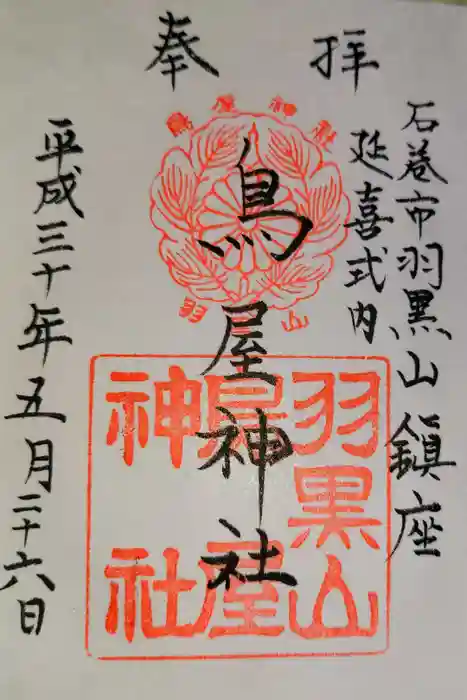 奉拝
石巻市羽黒山鎮座
延喜式内
鳥屋神社
鳥屋神社
羽山
羽黒山
鳥屋
神社
平成三十年五月二十六日